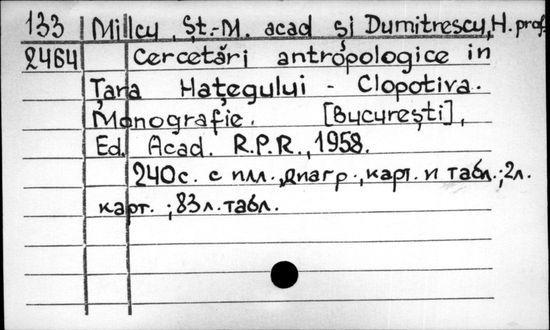 133 Millcu, Șt.-M. acad și Dumitrescu, H. prof.
2464 Cercetări antropologice in
Țara Hațegului - Clopotiva.
Monografie. [București],
Ed. Acad. R.P.R., 1958.
240с. с илл., диагр., карт. и табл.; 2л.
карт.; 83л. табл.